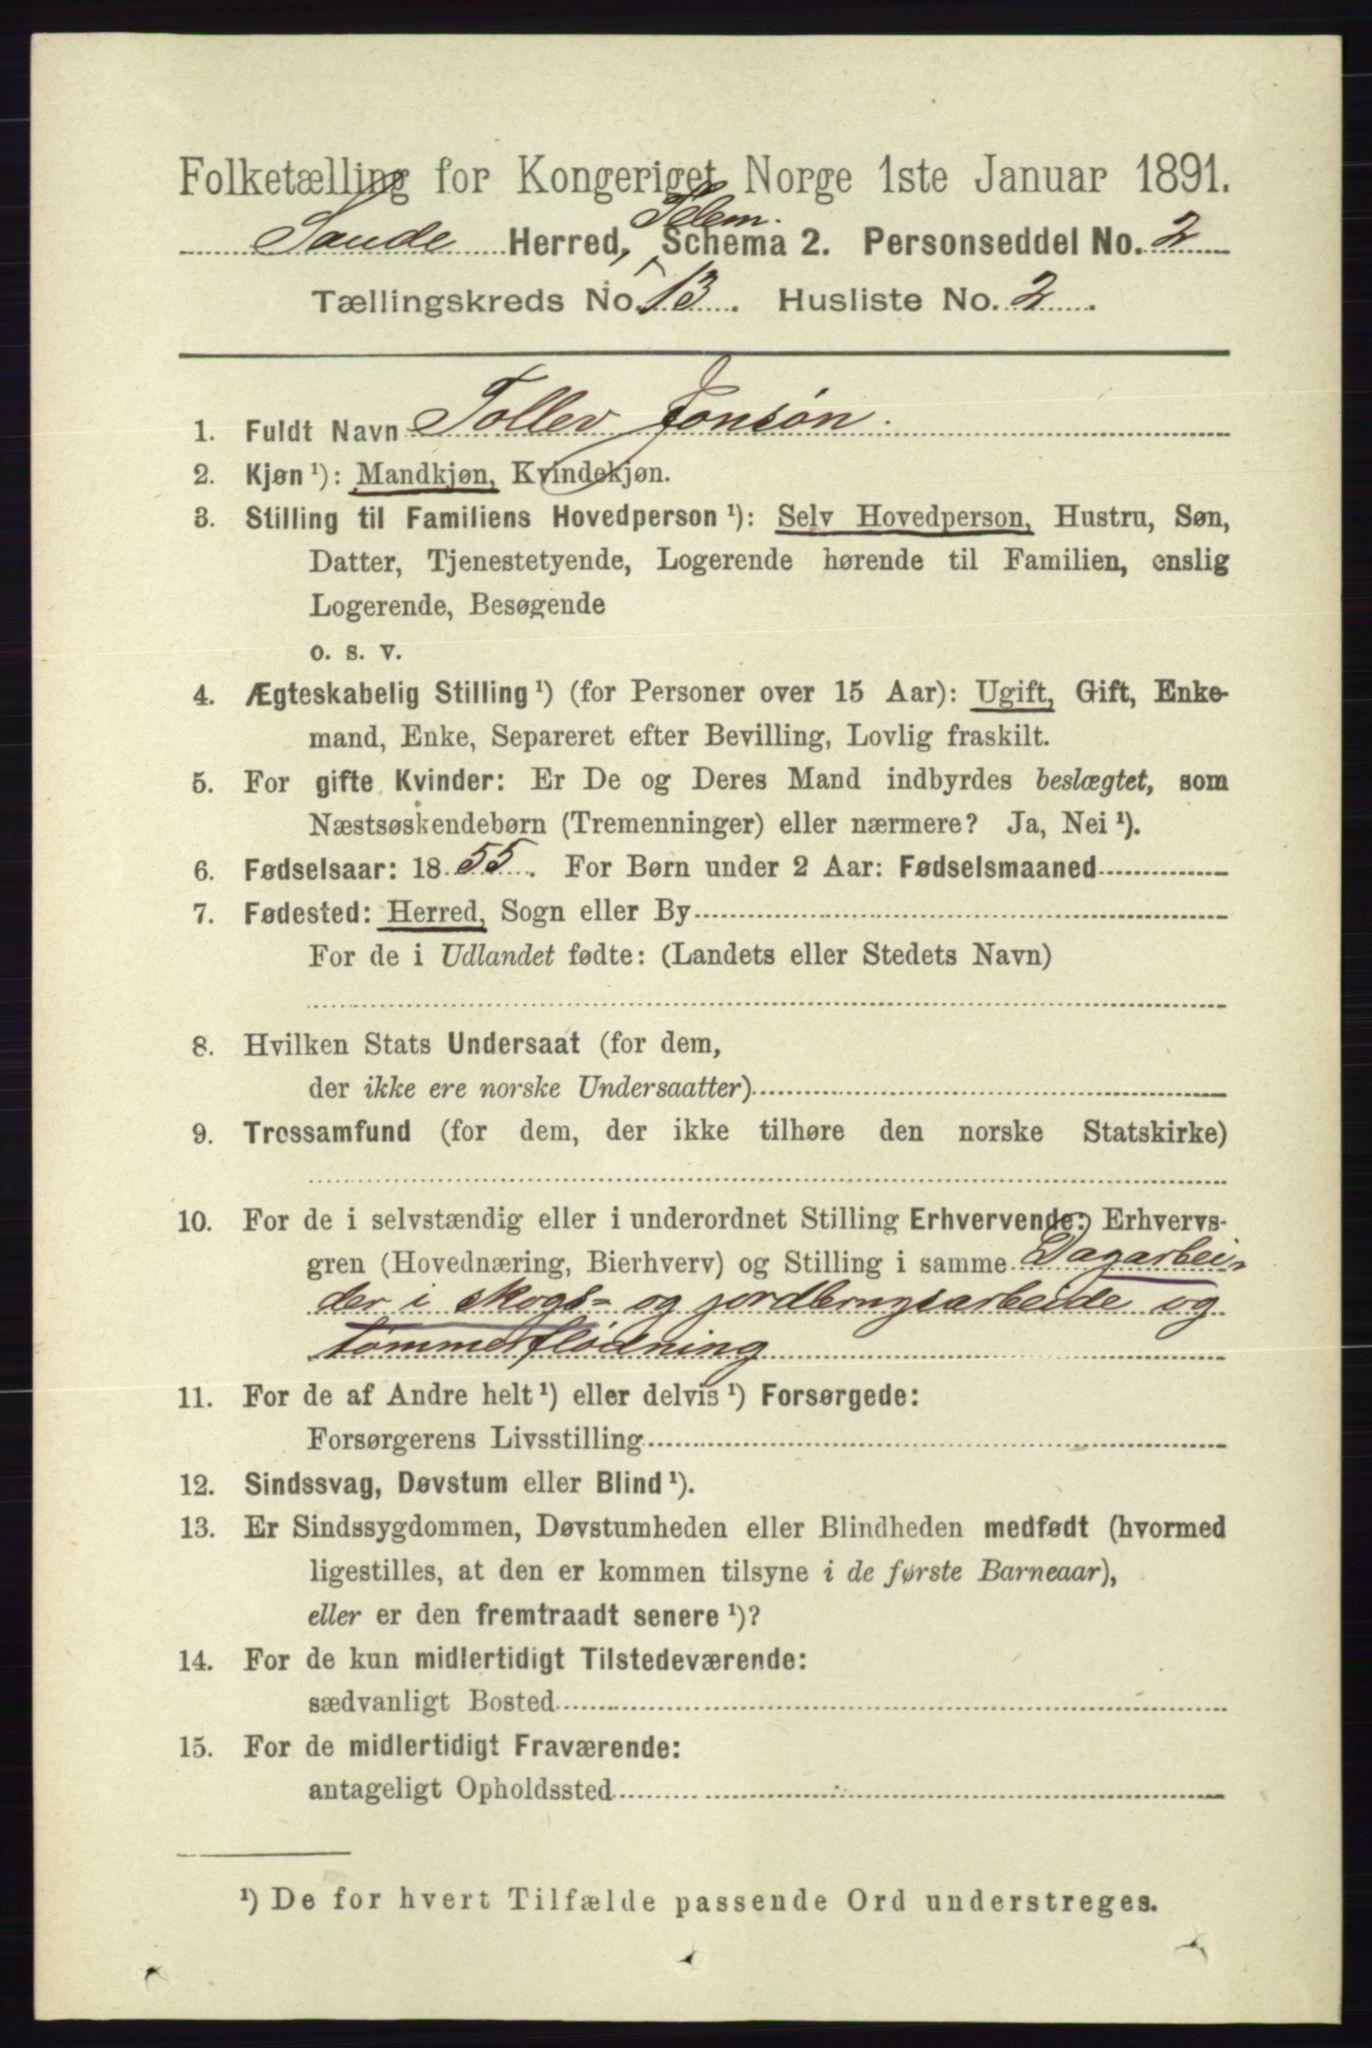 Folketælling for Kongeriget Norge 1ste Januar 1891.
Telem.
Saude Herred, Schema 2. Personseddel No. 2
Tællingskreds No. 13. Husliste No. 2
1. Fuldt Navn Tollev Jonsøn.
2. Kjøn ¹): Mandkjøn, Kvindekjøn.
3. Stilling til Familiens Hovedperson ¹): Selv Hovedperson, Hustru, Søn,
Datter, Tjenestetyende, Logerende hørende til Familien, enslig
Logerende, Besøgende
o. s. v.
4. Ægteskabelig Stilling ¹) (for Personer over 15 Aar): Ugift, Gift, Enke-
mand, Enke, Separeret efter Bevilling, Lovlig fraskilt.
5. For gifte Kvinder: Er De og Deres Mand indbyrdes beslægtet, som
Næstsøskendebørn (Tremenninger) eller nærmere? Ja, Nei ¹).
6. Fødselsaar: 1855. For Børn under 2 Aar: Fødselsmaaned
7. Fødested: Herred, Sogn eller By
For de i Udlandet fødte: (Landets eller Stedets Navn)
8. Hvilken Stats Undersaat (for dem,
der ikke ere norske Undersaatter)
9. Trossamfund (for dem, der ikke tilhøre den norske Statskirke)
10. For de i selvstændig eller i underordnet Stilling Erhvervende: Erhvervs-
gren (Hovednæring, Bierhverv) og Stilling i samme Dagarbei-
der i skogs- og jordbrugsarbeide og
tømmerflødning
11. For de af Andre helt ¹) eller delvis ¹) Forsørgede:
Forsørgerens Livsstilling
12. Sindssvag, Døvstum eller Blind ¹).
13. Er Sindssygdommen, Døvstumheden eller Blindheden medfødt (hvormed
ligestilles, at den er kommen tilsyne i de første Barneaar),
eller er den fremtraadt senere ¹)?
14. For de kun midlertidigt Tilstedeværende:
sædvanligt Bosted
15. For de midlertidigt Fraværende:
antageligt Opholdssted
¹) De for hvert Tilfælde passende Ord understreges.